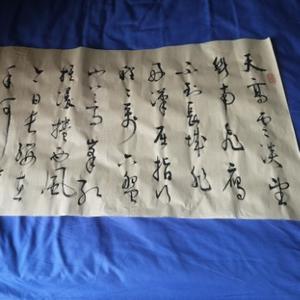 天高云淡望
断南飛雁
不到長城非
好漢屈指行
程二萬六盤
山上高峰红
旗漫捲西風
今日长缨在
手何